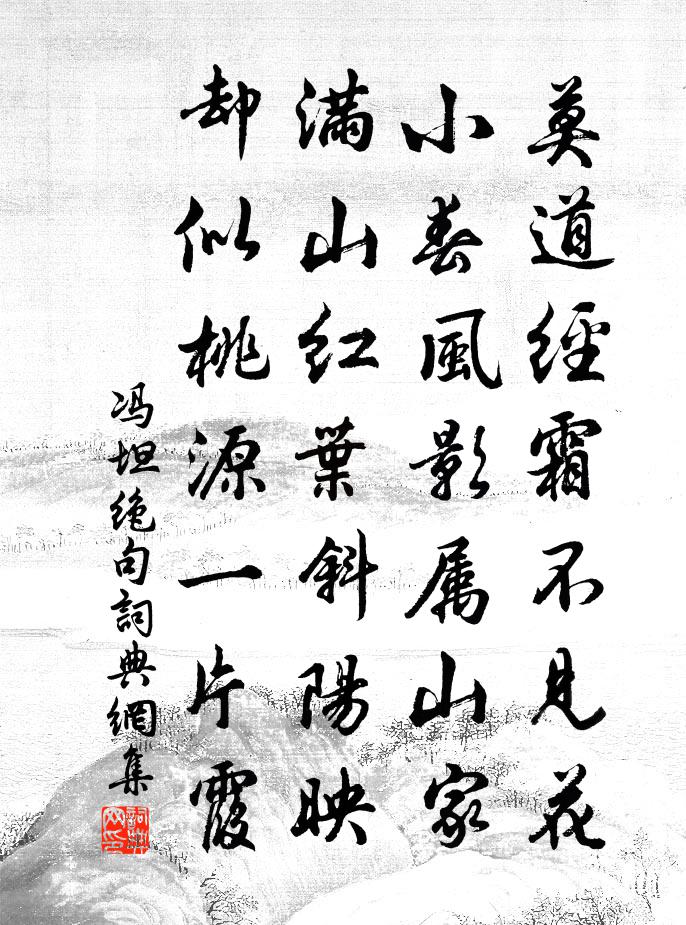 莫道經霜不見花
小春風影属山家
滿山红葉斜陽映
却似桃源一片霞
冯坦绝句詞典網集
詞典网印